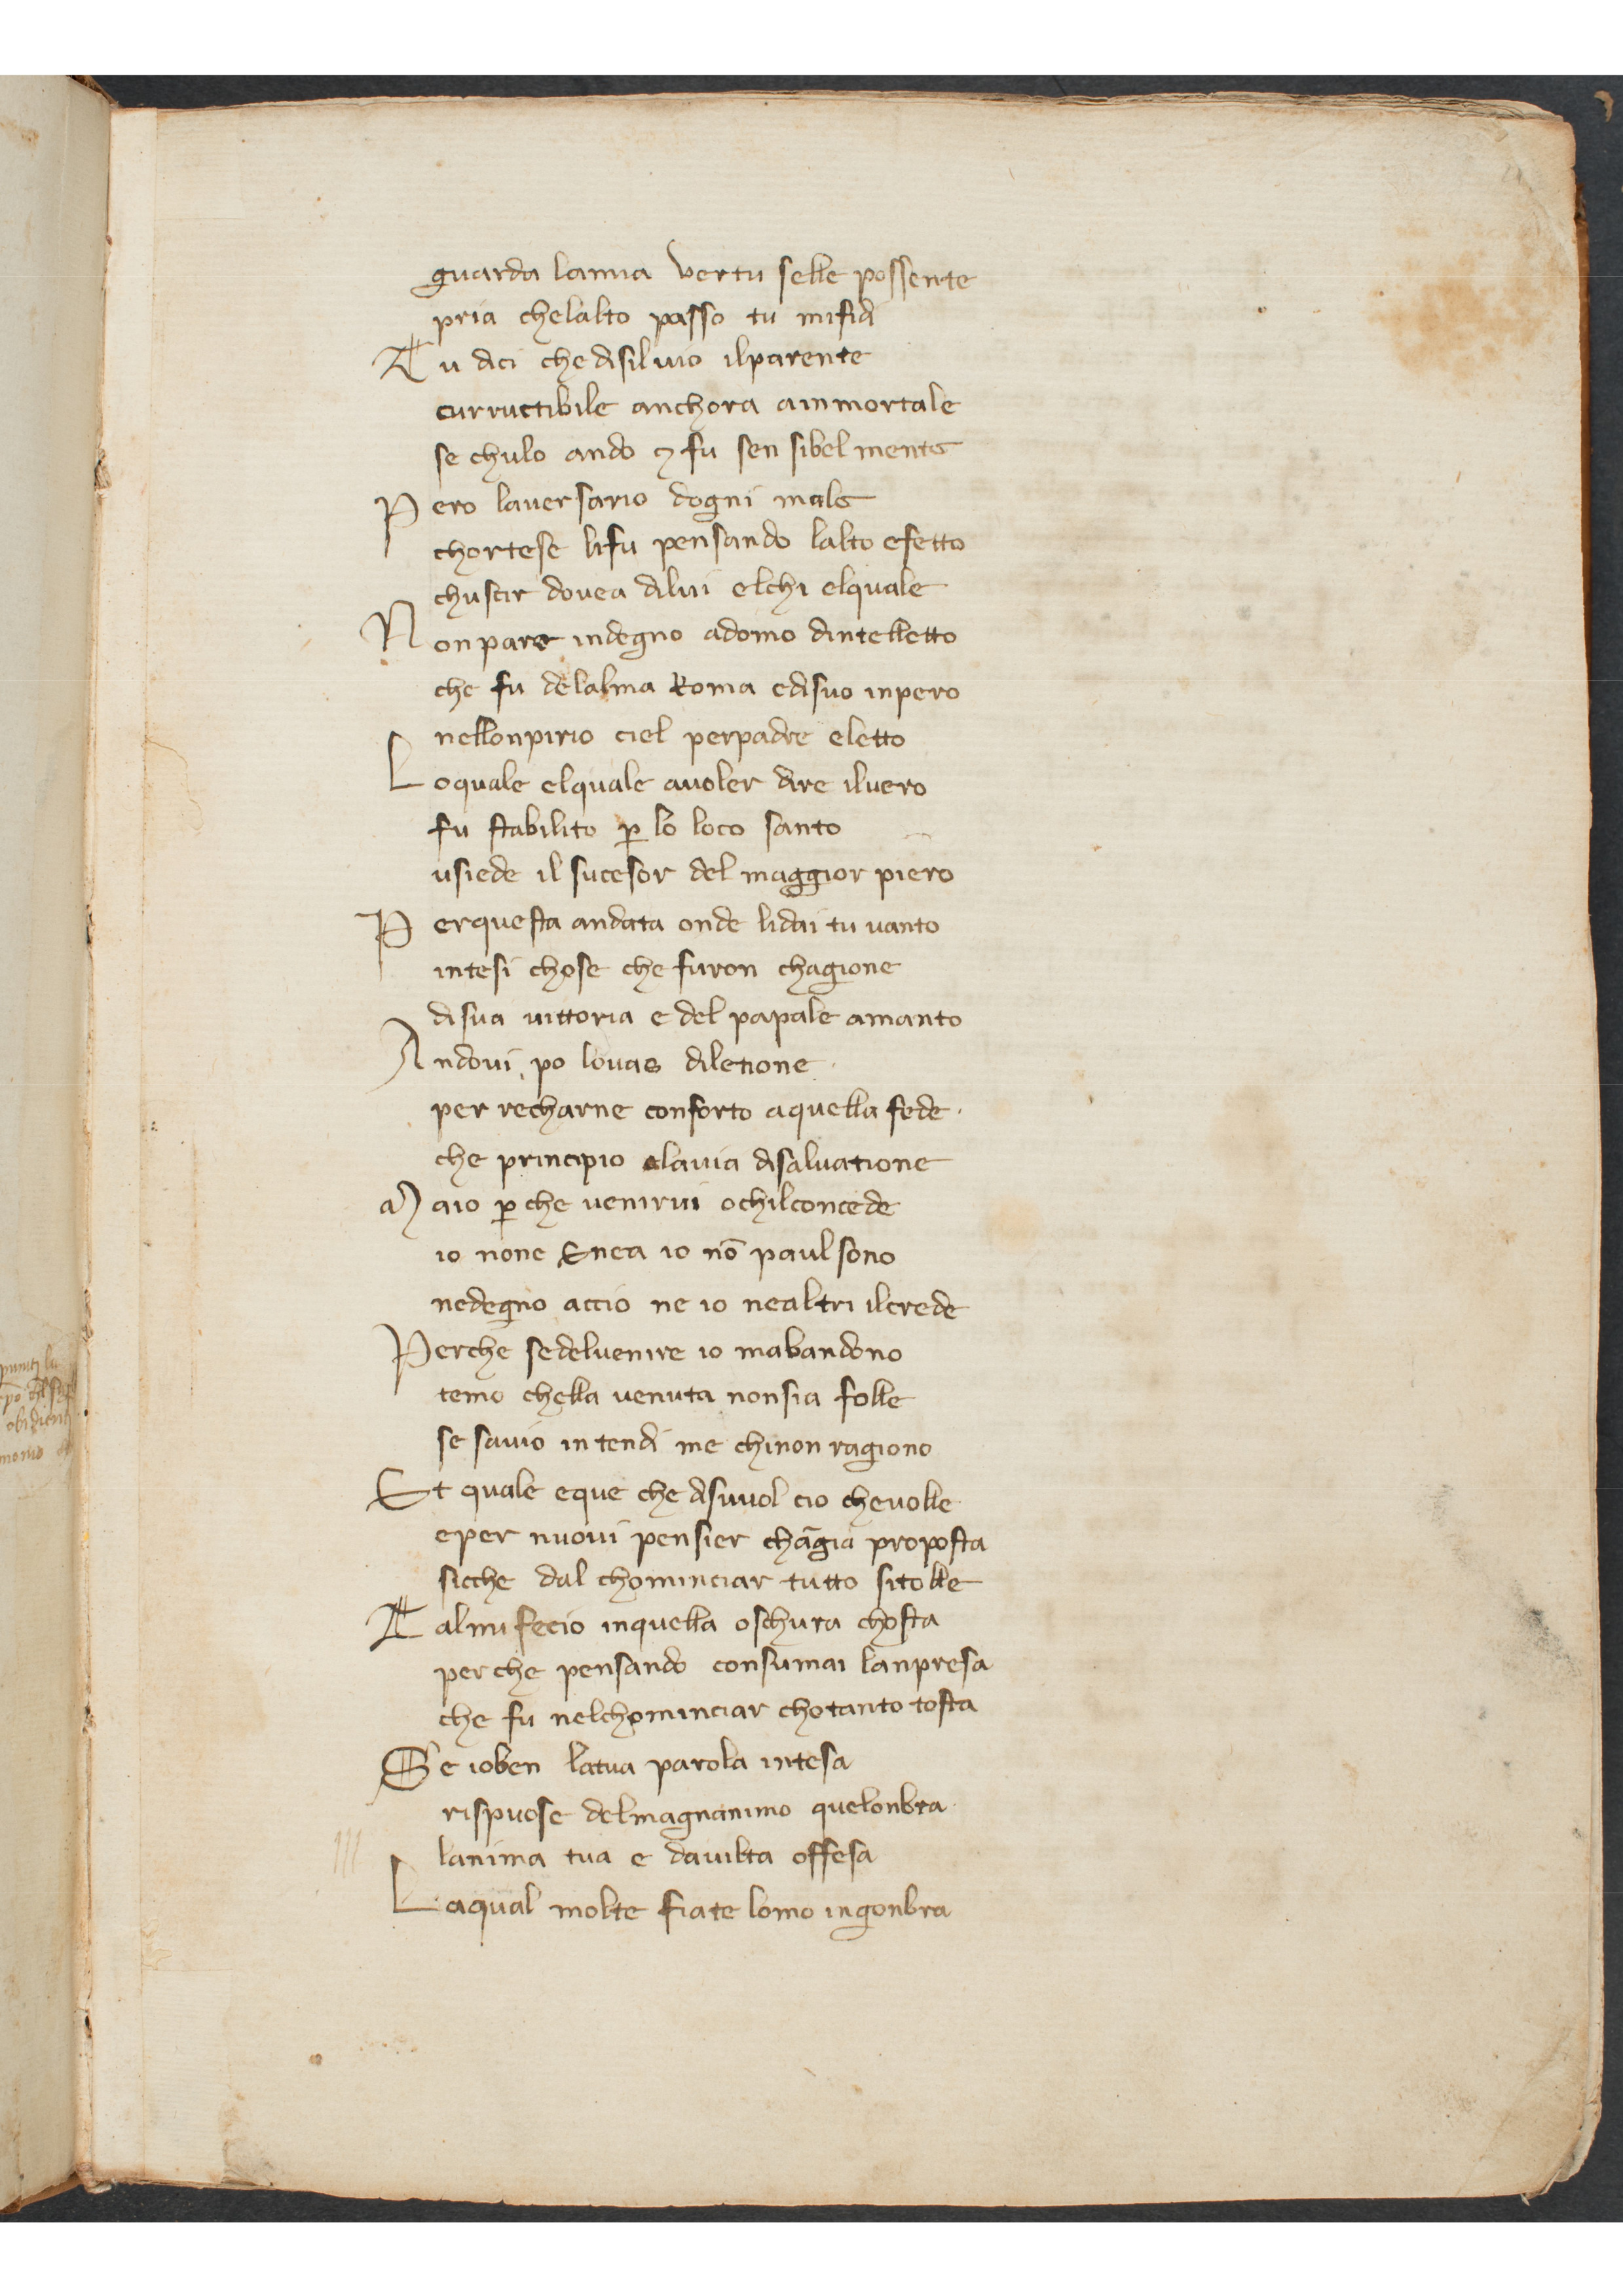 guarda lamia vertu selle possente
pria chelalto passo tu mifidi
Tu dici che disilvio ilparente
curructibile anchora ainmortale
se chulo ando ⁊ fu sen sibel mente
Pero laversario dogni male
chortese lifu pensando lalto efetto
chuscir dovea dilui elchi elquale
Non pare indegno adomo dintelletto
che fu delalma Roma edisuo inpero
nellonpirio ciel perpadre eletto
Loquale elquale avoler dire ilvero
fu stabilito ꝑ lo loco santo
usiede il sucesor del maggior piero
Perquesta andata onde lidai tu vanto
intesi chose che furon chagione
disua vittoria e del papale amanto
Andovi po lovas diletione
per recharne conforto aquella fede
che principio alavia disalvatione
Maio ꝑche venirvi ochilconcede
io none Enea io nō paul sono
nedegno accio ne io nealtri ilcrede
Perche sedelvenire io mabandono
temo chella venuta nonsia folle
se savio intendi me chinon ragiono
Et quale eque che disvuol cio chevolle
eper nuovi pensier chāgia proposta
sicche dal chominciar tutto sitolle
Talmi fecio inquella oschura chosta
perche pensando consumai lanpresa
che fu nelchominciar chotanto tosta
Se ioben latua parola intesa
rispuose delmagnanimo quelonbra
lanima tua e davilta offesa
Laqual molte fiate lomo ingonbra